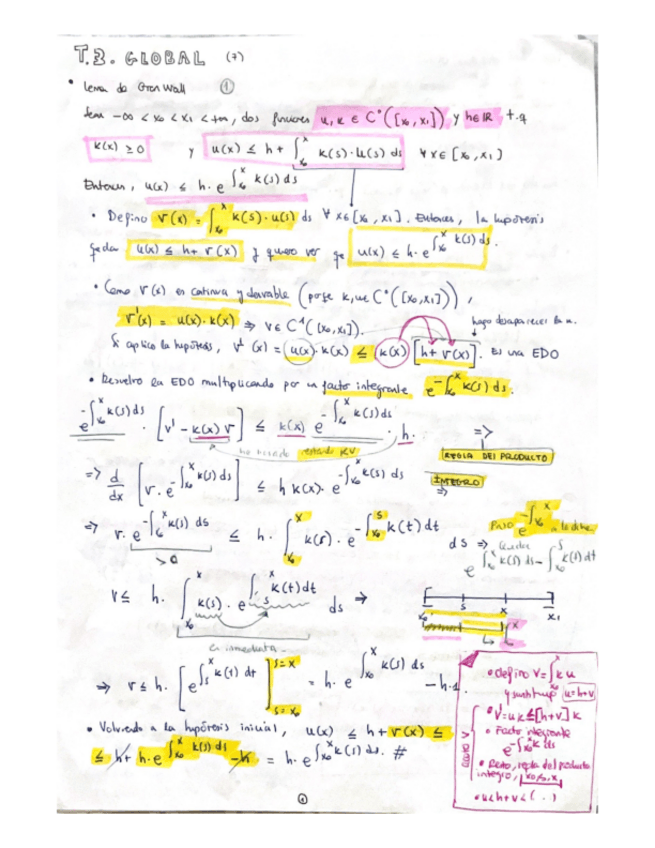 T.3. GLOBAL (7)
• Lema de Gronwall ①
Sean -∞ < x₀ < x₁ < +∞, dos funciones u, k ∈ C°([x₀, x₁]) y h∈ℝ t.q
k(x) ≥ 0 y u(x) ≤ h + ∫_{x₀}^{x} k(s)·u(s) ds ∀ x ∈ [x₀, x₁]
Entonces, u(x) ≤ h · e^{∫_{x₀}^{x} k(s) ds}
• Defino v(x) = ∫_{x₀}^{x} k(s)·u(s) ds ∀ x∈[x₀, x₁]. Entonces, la hipótesis
queda u(x) ≤ h + v(x) y quiero ver qe u(x) ≤ h·e^{∫_{x₀}^{x} k(s) ds}.
• Como v(x) es continua y derivable (porqe k, u∈ C°([x₀,x₁])),
v'(x) = u(x)·k(x) ⇒ v∈C¹([x₀,x₁]). hago desaparecer la u.
Si aplico la hipótesis, v'(x) = u(x)·k(x) ≤ k(x) [h + v(x)]. Es una EDO
• Resuelvo la EDO multiplicando por un factor integrante e^{-∫_{x₀}^{x} k(s) ds}.
e^{-∫_{x₀}^{x} k(s) ds} · [v' - k(x) v] ≤ k(x) e^{-∫_{x₀}^{x} k(s) ds} · h. ⇒
restando kv
REGLA DEL PRODUCTO
⇒ d/dx [v · e^{-∫_{x₀}^{x} k(s) ds}] ≤ h k(x) · e^{-∫_{x₀}^{x} k(s) ds} INTEGRO ⇒
⇒ v · e^{-∫_{x₀}^{x} k(s) ds} ≤ h · ∫_{x₀}^{x} k(s) · e^{-∫_{x₀}^{s} k(t) dt} ds ⇒
> 0
Paso e^{-∫_{x₀}^{x}} a la dcha
e^{∫_{x₀}^{x} k(s) ds - ∫_{x₀}^{s} k(t) dt}
v ≤ h · ∫_{x₀}^{x} k(s) · e^{∫_{s}^{x} k(t) dt} ds ⇒
x₀ s x x₁
es inmediata
⇒ v ≤ h · [e^{∫_{s}^{x} k(t) dt}]_{s=x₀}^{s=x} = h · e^{∫_{x₀}^{x} k(s) ds} - h·1
• Volviendo a la hipótesis inicial, u(x) ≤ h + v(x) ≤
≤ h + h·e^{∫_{x₀}^{x} k(s) ds} - h = h·e^{∫_{x₀}^{x} k(s) ds}. #
• defino V = ∫_{x₀}^{x} k u
y sustituyo u = h+v
• V' = u k ≤ [h+v] k
• Factor integrante
e^{-∫_{x₀}^{x} k ds}
• Resto, regla del producto
integro, [x₀, x]
• u ≤ h + v ≤ (...)
①